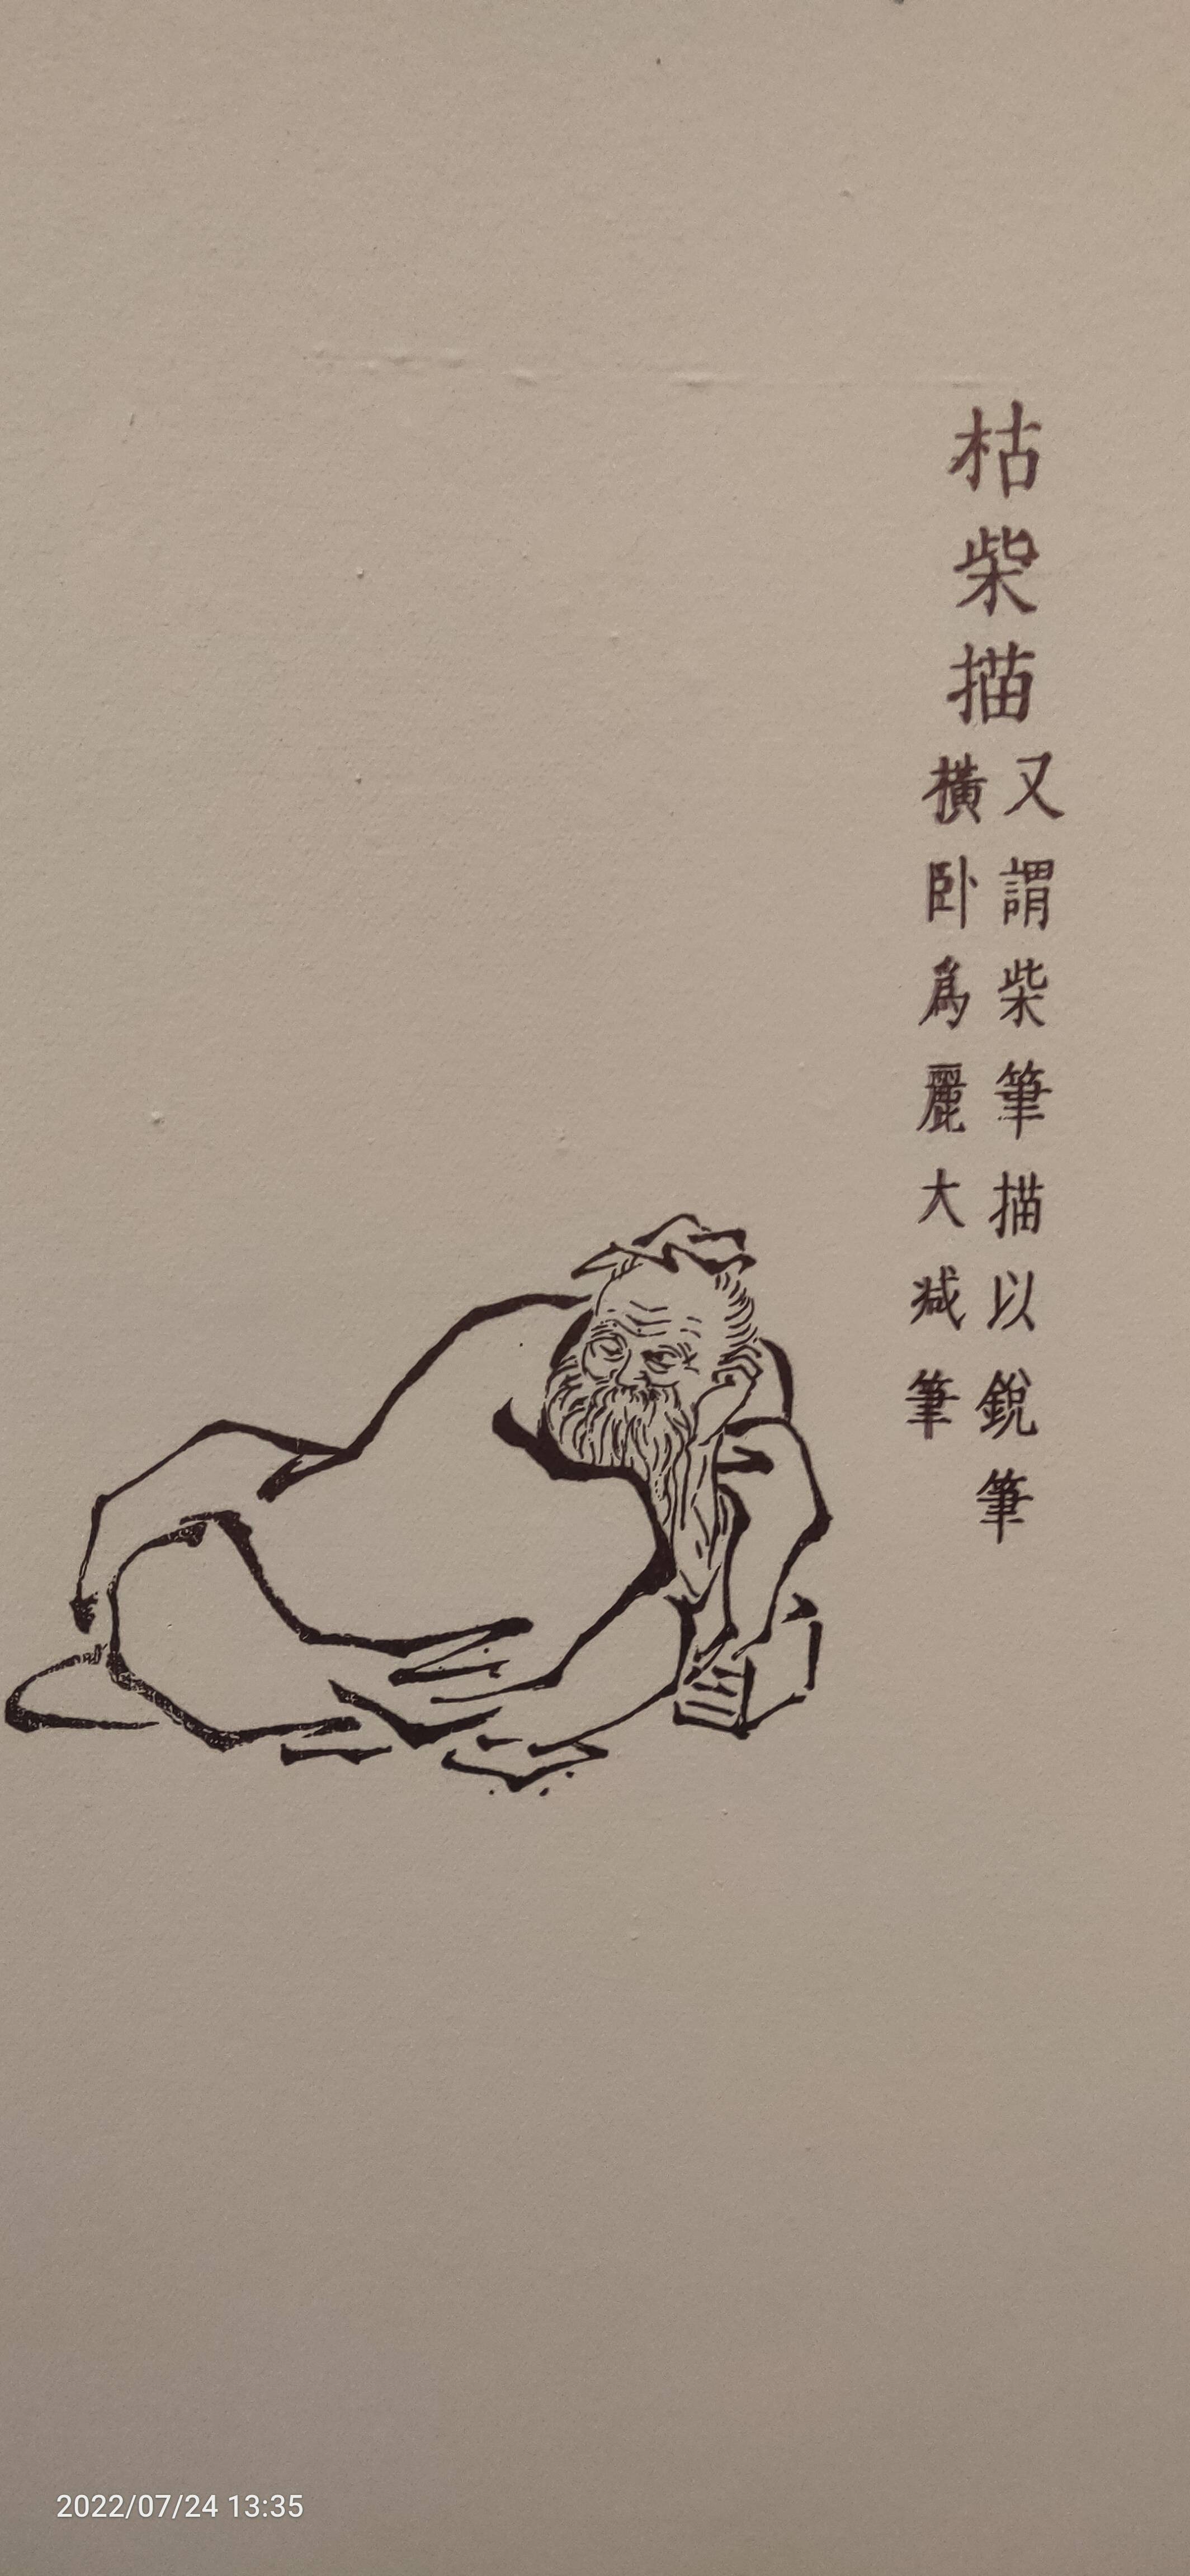 枯柴描
又謂柴筆描以銳筆
橫卧爲麗大减筆
2022/07/24 13:35